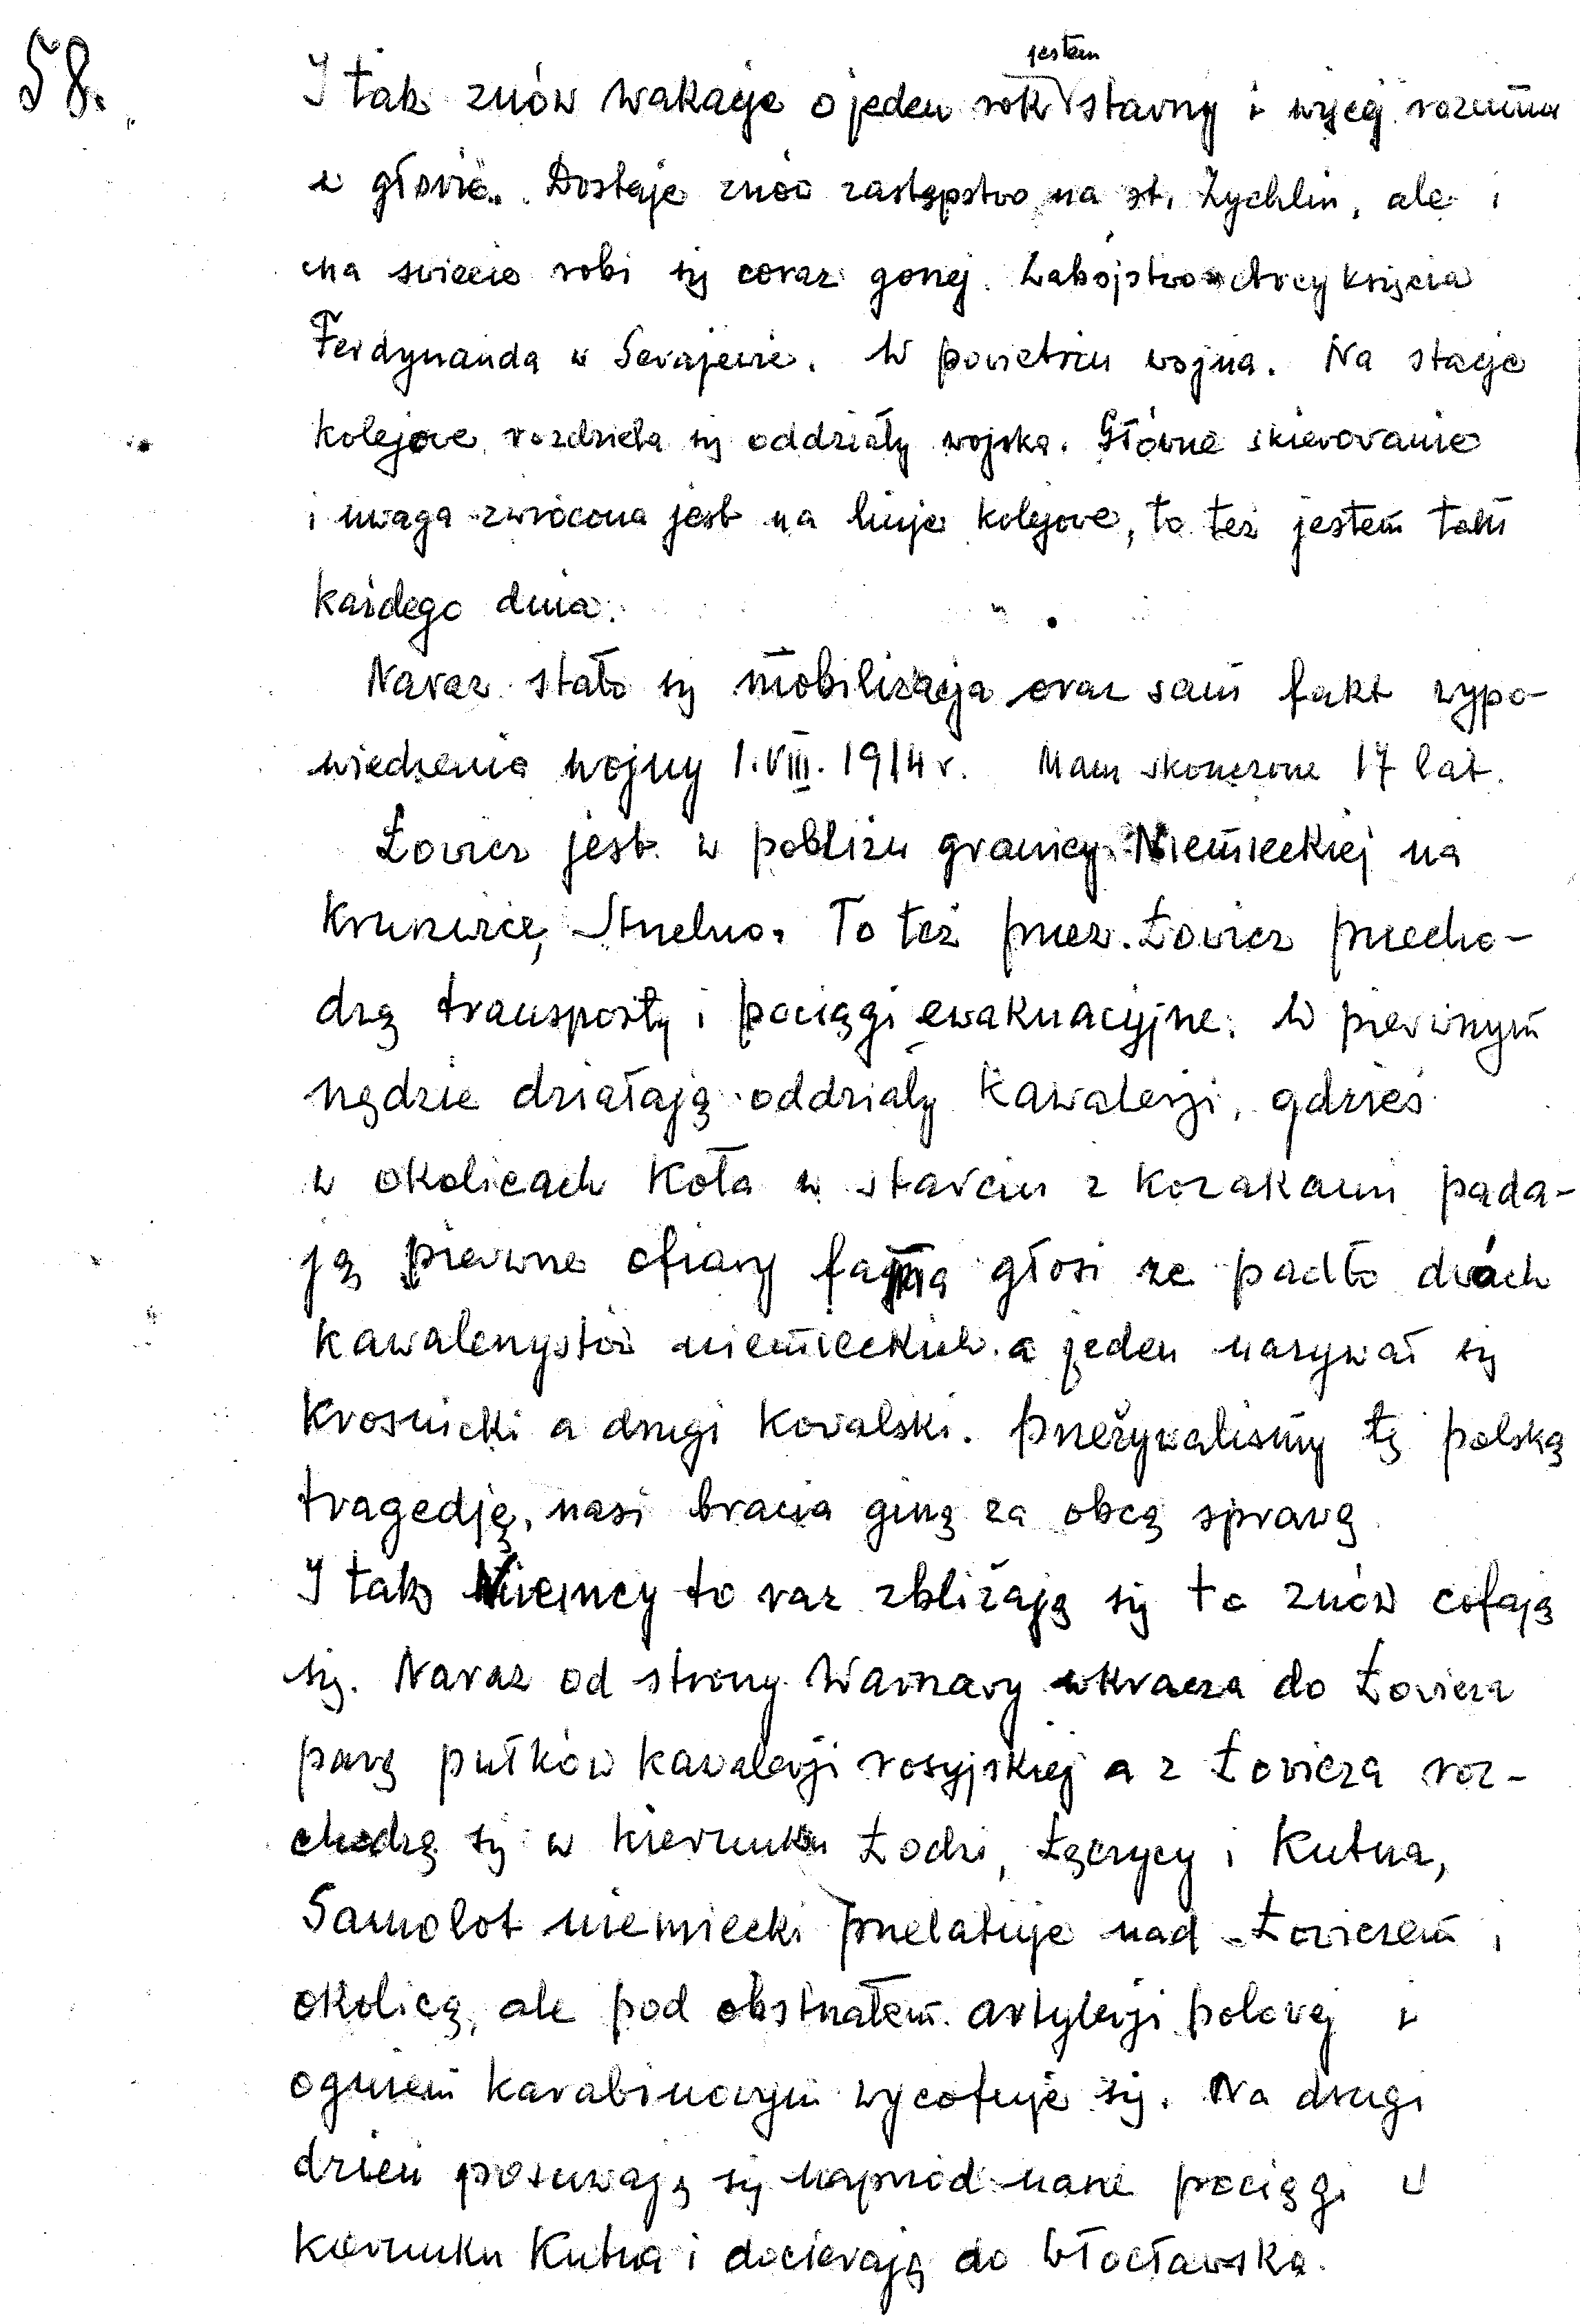 58.
jestem
I tak znów wakacje o jeden rok starszy i więcej rozumu
w głowie. Dostaję znów zastępstwo na st. Żychlin, ale i
na świecie robi się coraz gorzej. Zabójstwo Arcyksięcia
Ferdynanda w Serajewie. W powietrzu wojna. Na stacje
kolejowe rozdziela się oddziały wojska. Główne skierowanie
i uwaga zwrócona jest na linje kolejowe, to też jestem tam
każdego dnia.
Naraz stało się mobilizacja oraz sam fakt wypo-
wiedzenia wojny 1.VIII.1914 r. Mam skończone 17 lat.
Łowicz jest w pobliżu granicy Niemieckiej na
Kruszwicę, Strzelno. To też przez Łowicz przecho-
dzą transporty i pociągi ewakuacyjne. W pierwszym
rzędzie działają oddziały kawalerji, gdzieś
w okolicach Koła w starciu z kozakami pada-
ją pierwsze ofiary fama głosi że padło dwóch
kawalerzystów niemieckich a jeden nazywał się
Krośnicki a drugi Kowalski. Przeżywaliśmy tę polską
tragedję, nasi bracia giną za obcą sprawę
I tak Niemcy to raz zbliżają się to znów cofają
się. Naraz od strony Warszawy wkracza do Łowicza
parę pułków kawalerji rosyjskiej a z Łowicza roz-
chodzą się w kierunku Łodzi, Łęczycy i Kutna,
Samolot niemiecki przelatuje nad Łowiczem i
okolicą, ale pod obstrzałem artylerji polowej i
ogniem karabinowym wycofuje się. Na drugi
dzień posuwają się naprzód nasze pociągi w
kierunku Kutna i docierają do Włocławska.